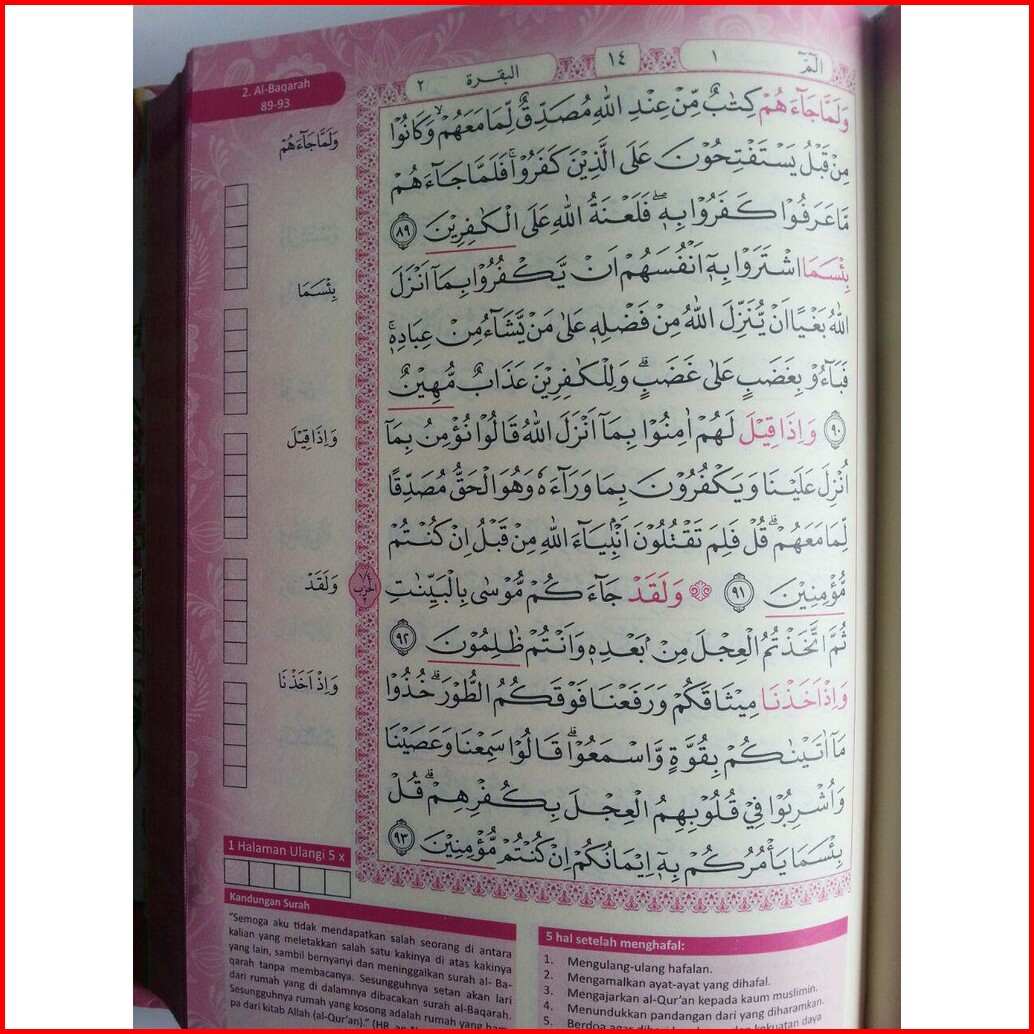 2. Al-Baqarah
89-93
البقرة ٢
١٤
الٓمّٓ ١
وَلَمَّا جَآءَهُمْ كِتٰبٌ مِّنْ عِنْدِ اللّٰهِ مُصَدِّقٌ لِّمَا مَعَهُمْۙ وَكَانُوْا
مِنْ قَبْلُ يَسْتَفْتِحُوْنَ عَلَى الَّذِيْنَ كَفَرُوْاۚ فَلَمَّا جَآءَهُمْ
مَّا عَرَفُوْا كَفَرُوْا بِهٖۖ فَلَعْنَةُ اللّٰهِ عَلَى الْكٰفِرِيْنَ ٨٩
بِئْسَمَا اشْتَرَوْا بِهٖٓ اَنْفُسَهُمْ اَنْ يَّكْفُرُوْا بِمَآ اَنْزَلَ
اللّٰهُ بَغْيًا اَنْ يُّنَزِّلَ اللّٰهُ مِنْ فَضْلِهٖ عَلٰى مَنْ يَّشَآءُ مِنْ عِبَادِهٖۚ
فَبَآءُوْ بِغَضَبٍ عَلٰى غَضَبٍۗ وَلِلْكٰفِرِيْنَ عَذَابٌ مُّهِيْنٌ
٩٠ وَاِذَا قِيْلَ لَهُمْ اٰمِنُوْا بِمَآ اَنْزَلَ اللّٰهُ قَالُوْا نُؤْمِنُ بِمَآ
اُنْزِلَ عَلَيْنَا وَيَكْفُرُوْنَ بِمَا وَرَآءَهٗ وَهُوَ الْحَقُّ مُصَدِّقًا
لِّمَا مَعَهُمْۗ قُلْ فَلِمَ تَقْتُلُوْنَ اَنْۢبِيَآءَ اللّٰهِ مِنْ قَبْلُ اِنْ كُنْتُمْ
مُّؤْمِنِيْنَ ٩١ ۞ وَلَقَدْ جَآءَكُمْ مُّوْسٰى بِالْبَيِّنٰتِ
ثُمَّ اتَّخَذْتُمُ الْعِجْلَ مِنْۢ بَعْدِهٖ وَاَنْتُمْ ظٰلِمُوْنَ ٩٢
وَاِذْ اَخَذْنَا مِيْثَاقَكُمْ وَرَفَعْنَا فَوْقَكُمُ الطُّوْرَۗ خُذُوْا
مَآ اٰتَيْنٰكُمْ بِقُوَّةٍ وَّاسْمَعُوْاۗ قَالُوْا سَمِعْنَا وَعَصَيْنَا
وَاُشْرِبُوْا فِيْ قُلُوْبِهِمُ الْعِجْلَ بِكُفْرِهِمْۗ قُلْ
بِئْسَمَا يَأْمُرُكُمْ بِهٖٓ اِيْمَانُكُمْ اِنْ كُنْتُمْ مُّؤْمِنِيْنَ ٩٣
وَلَمَّا جَآءَهُمْ
بِئْسَمَا
وَاِذَا قِيْلَ
وَلَقَدْ
وَاِذْ اَخَذْنَا
1 Halaman Ulangi 5 x
Kandungan Surah
"Semoga aku tidak mendapatkan salah seorang di antara
kalian yang meletakkan salah satu kakinya di atas kakinya
yang lain, sambil bernyanyi dan meninggalkan surah al-Ba-
qarah tanpa membacanya. Sesungguhnya setan akan lari
dari rumah yang di dalamnya dibacakan surah al-Baqarah.
Sesungguhnya rumah yang kosong adalah rumah yang
pa dari kitab Allah (al-Qur'an)." (HR.
5 hal setelah menghafal:
1. Mengulang-ulang hafalan.
2. Mengamalkan ayat-ayat yang dihafal.
3. Mengajarkan al-Qur'an kepada kaum muslimin.
4. Menundukkan pandangan dari yang diharamkan.
5. Berdoa agar kekuatan daya